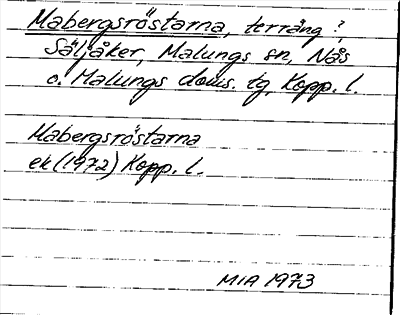 Mabergsröstarna, terräng?,
Säljåker, Malungs sn, Nås
o. Malungs doms. tg, Kopp. l.
Mabergsröstarna
ek (1972) Kopp. l.
MIA 1973